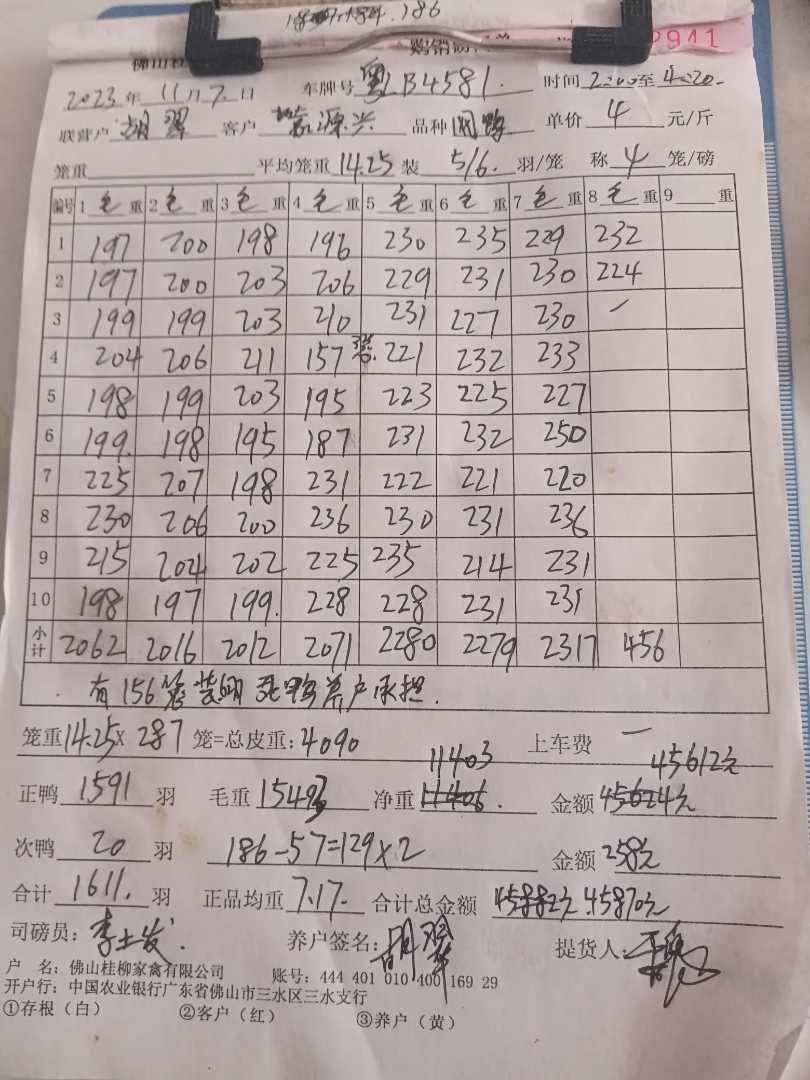 186
购销
2941
佛山
2023年 11月7日 车牌号 粤LB4581. 时间 2:00至4:20
联营户 胡翠 客户 源兴 品种 单价 4 元/斤
笼重 平均笼重 14.25 装 5/6. 羽/笼 称 4 笼/磅
编号 1 毛 重 2 毛 重 3 毛 重 4 毛 重 5 毛 重 6 毛 重 7 毛 重 8 毛 重 9 重
1 197 200 198 196 230 235 229 232
2 197 200 203 206 229 231 230 224
3 199 199 203 210 231 227 230 一
4 204 206 211 157 3笼. 221 232 233
5 198 199 203 195 223 225 227
6 199. 198 195 187 231 232 250
7 225 207 198 231 222 221 220
8 230 206 200 236 230 231 236
9 215 204 202 225 235 214 231
10 198 197 199. 228 228 231 231
小计 2062 2016 2012 2071 2280 2279 2317 456
有156笼装 死鸭养户承担.
笼重 14.25 X 287 笼=总皮重: 4090 上车费 一
11403 45612元
正鸭 1591 羽 毛重 15493 净重 11406. 金额 45624元
次鸭 20 羽 186-57=129×2 金额 258元
合计 1611. 羽 正品均重 7.17. 合计总金额 45882元 45870元
司磅员: 李土发 养户签名: 胡翠 提货人:
户 名: 佛山桂柳家禽有限公司 账号: 444 401 010 400 169 29
开户行: 中国农业银行广东省佛山市三水区三水支行
①存根(白) ②客户(红) ③养户(黄)